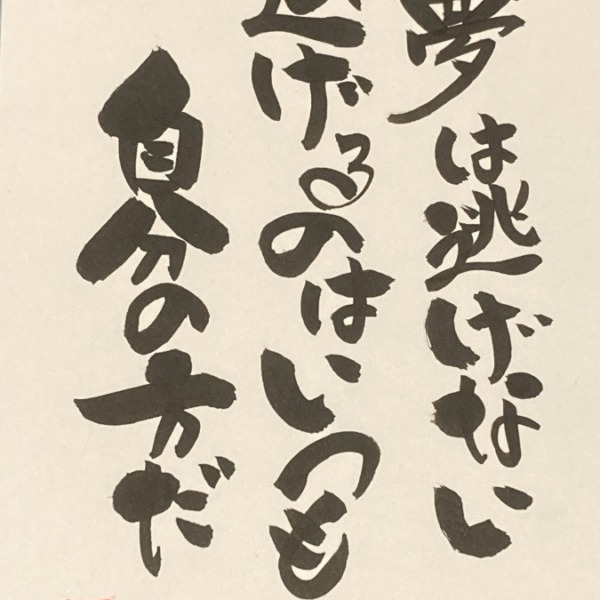 夢は逃げない
逃げるのはいつも
自分の方だ